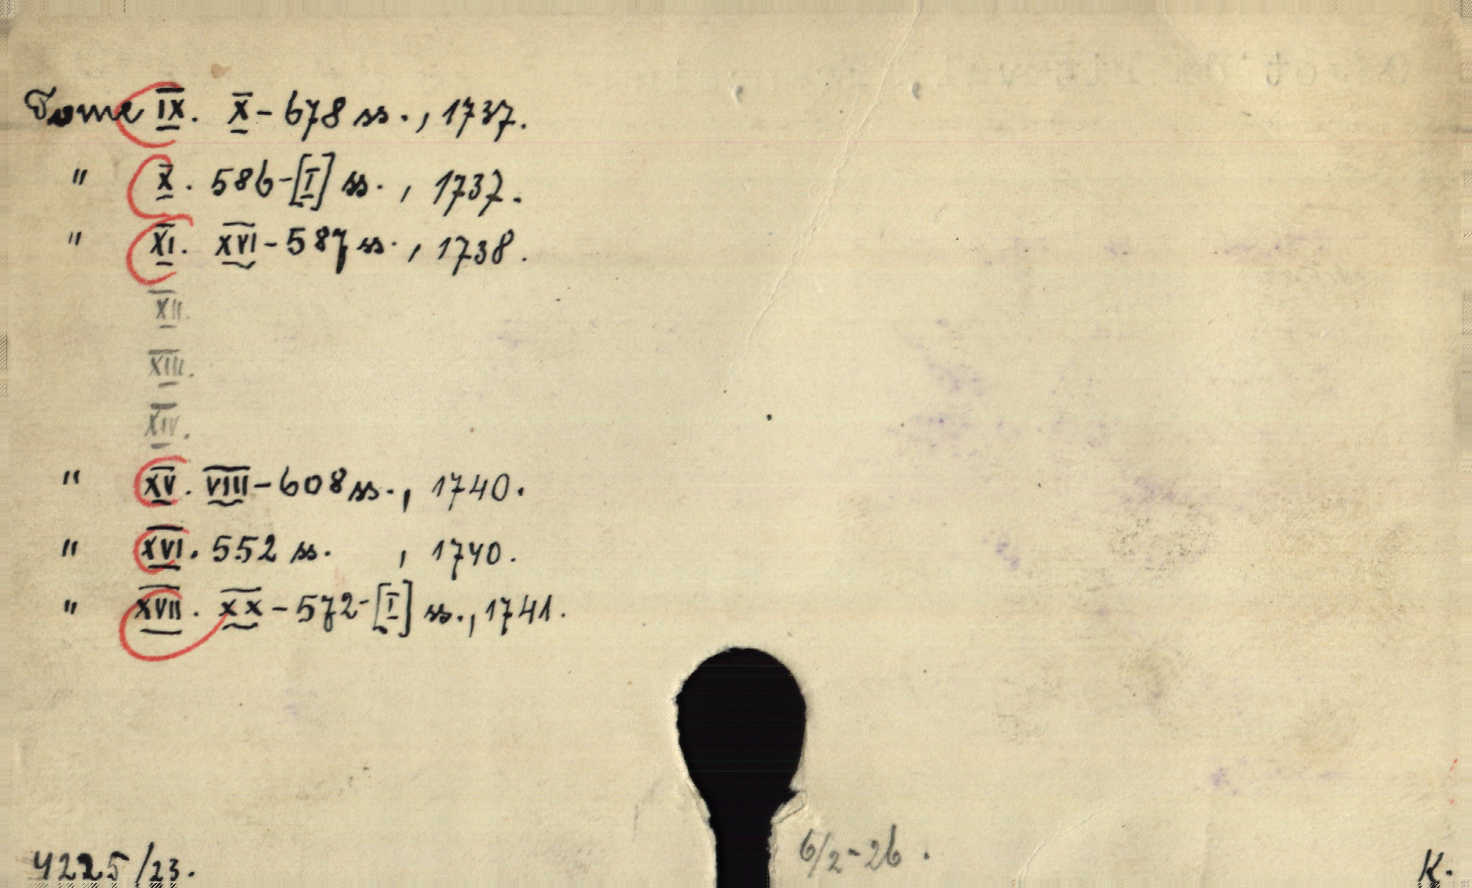 Tome IX. X - 678 ss., 1737.
" X. 586-[I] ss., 1737.
" XI. XVI - 587 ss., 1738.
XII.
XIII.
XIV.
" XV. VIII - 608 ss., 1740.
" XVI. 552 ss. , 1740.
" XVII. XX - 572-[I] ss., 1741.
4225/23.
6/2-26.
K.